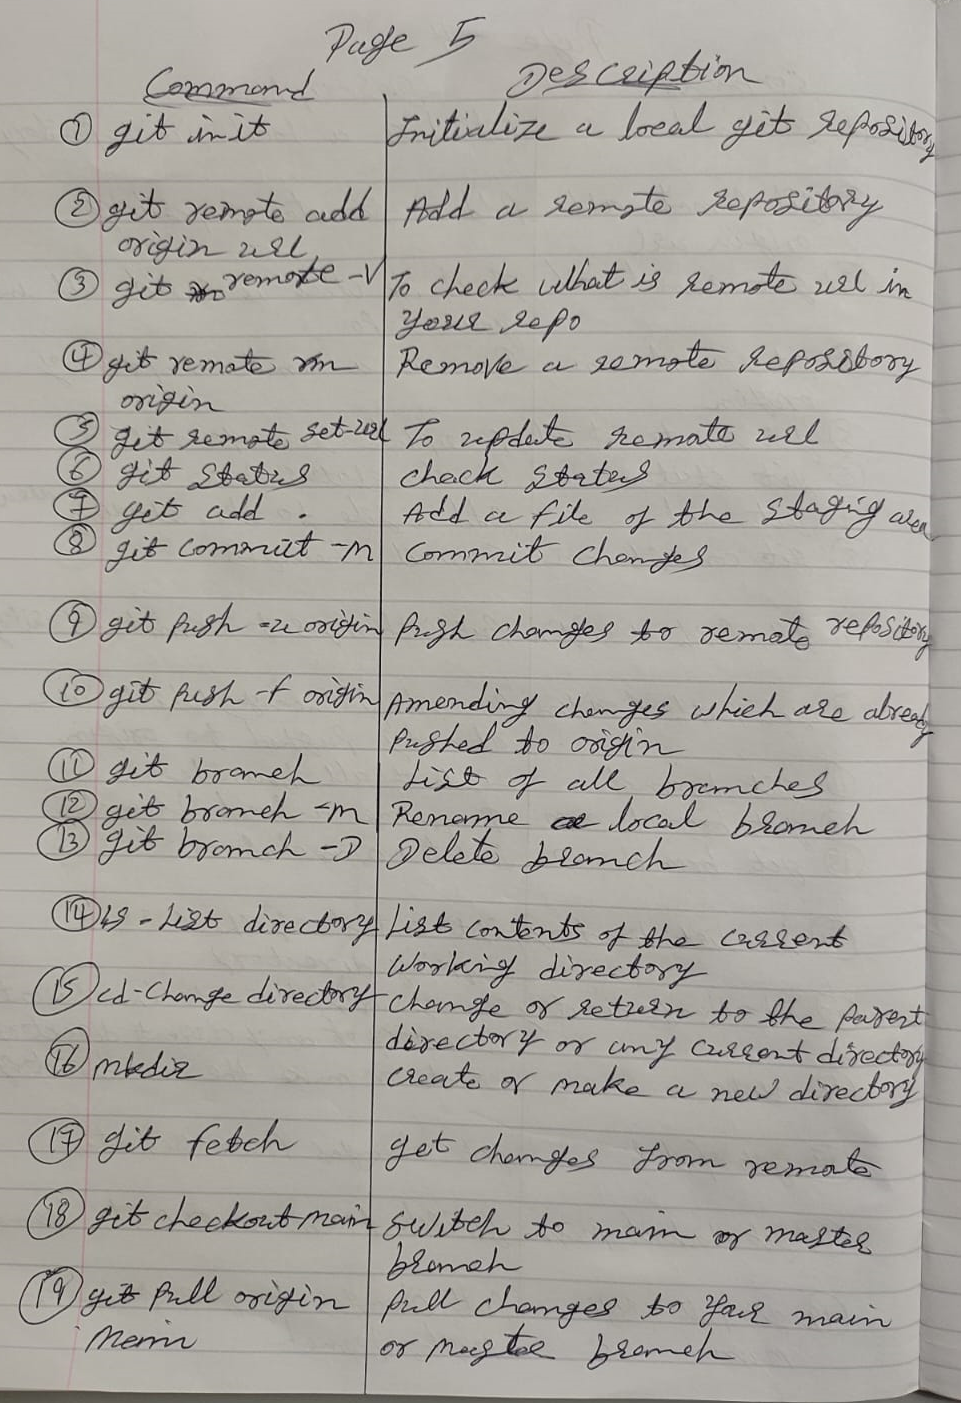 Page 5
Command Description
① git init Initialize a local git repository
② git remote add Add a remote repository
origin url
③ git remote -v To check what is remote url in
your repo
④ git remote rm Remove a remote repository
origin
⑤ git remote set-url To update remote url
⑥ git status check status
⑦ git add . Add a file of the staging area
⑧ git commit -m commit changes
⑨ git push -u origin Push changes to remote repository
⑩ git push -f origin Amending changes which are already
pushed to origin
⑪ git branch List of all branches
⑫ git branch -m Rename a local branch
⑬ git branch -D Delete branch
⑭ ls - List directory List contents of the current
working directory
⑮ cd-Change directory change or return to the parent
directory or any current directory
⑯ mkdir create or make a new directory
⑰ git fetch get changes from remote
⑱ git checkout main switch to main or master
branch
⑲ git pull origin pull changes to your main
main or master branch